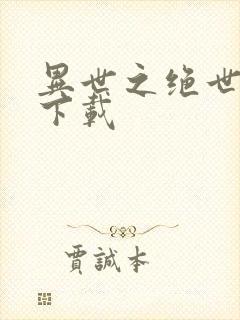 異世之绝世
下載
賈誠本